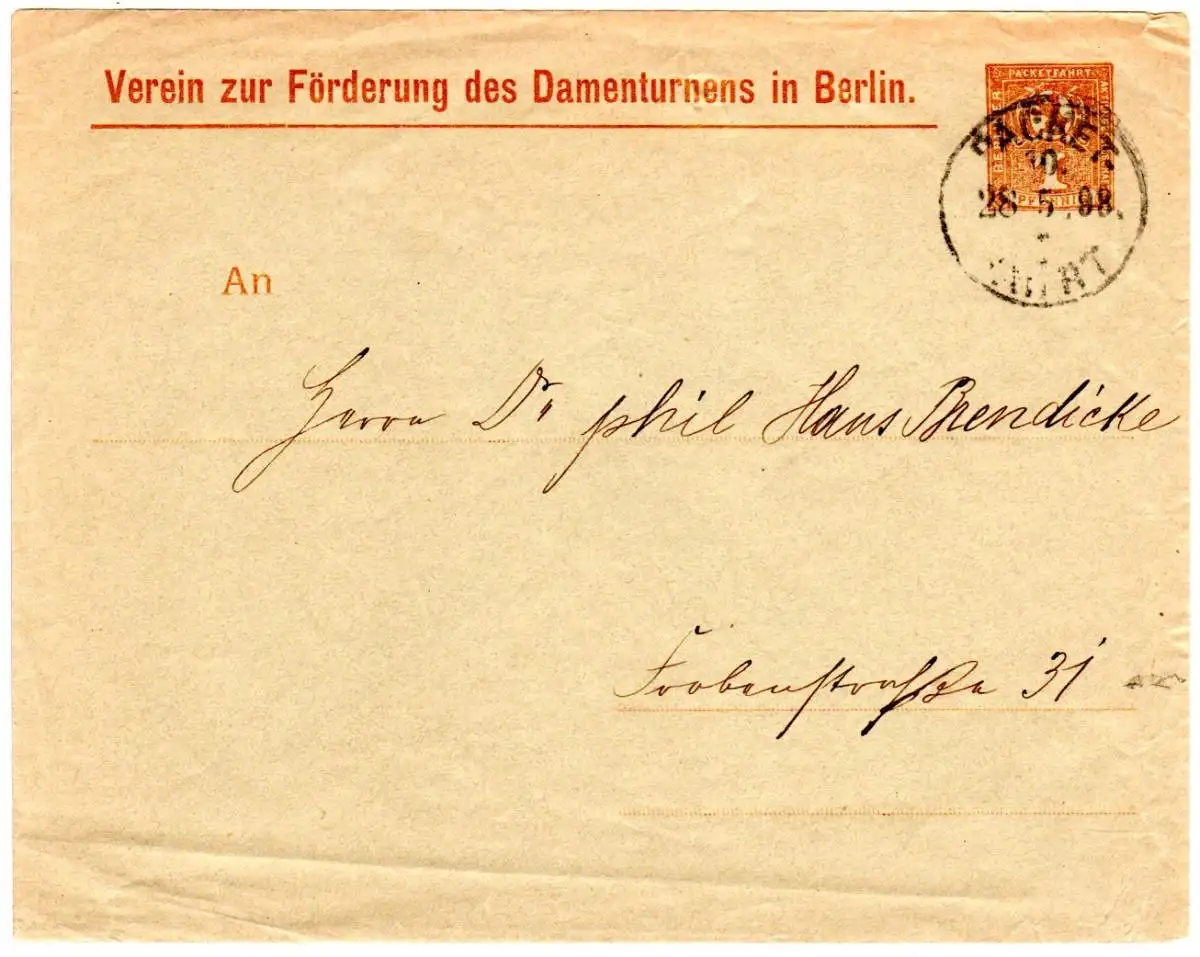 Verein zur Förderung des Damenturnens in Berlin.
PACKETFAHRT
BERLINER
1
PFENNIG
PACKET
10.
28 5.98.
FAHRT
An
Herrn Dr phil Hans Brendicke
Frobenstraße 31